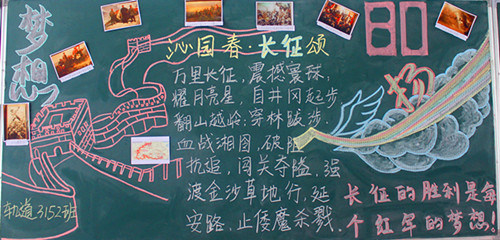 梦想
沁园春·长征颂
80
万里长征,震撼寰球,
耀月亮星,自井冈起步
翻山越岭,穿林跋步.
血战湘图,破胜
抗追,闯关夺隘,强
渡金沙草地行,延
安路,止倭魔杀戮.
扬
长征的胜利是每
个红军的梦想.
轨道3152班